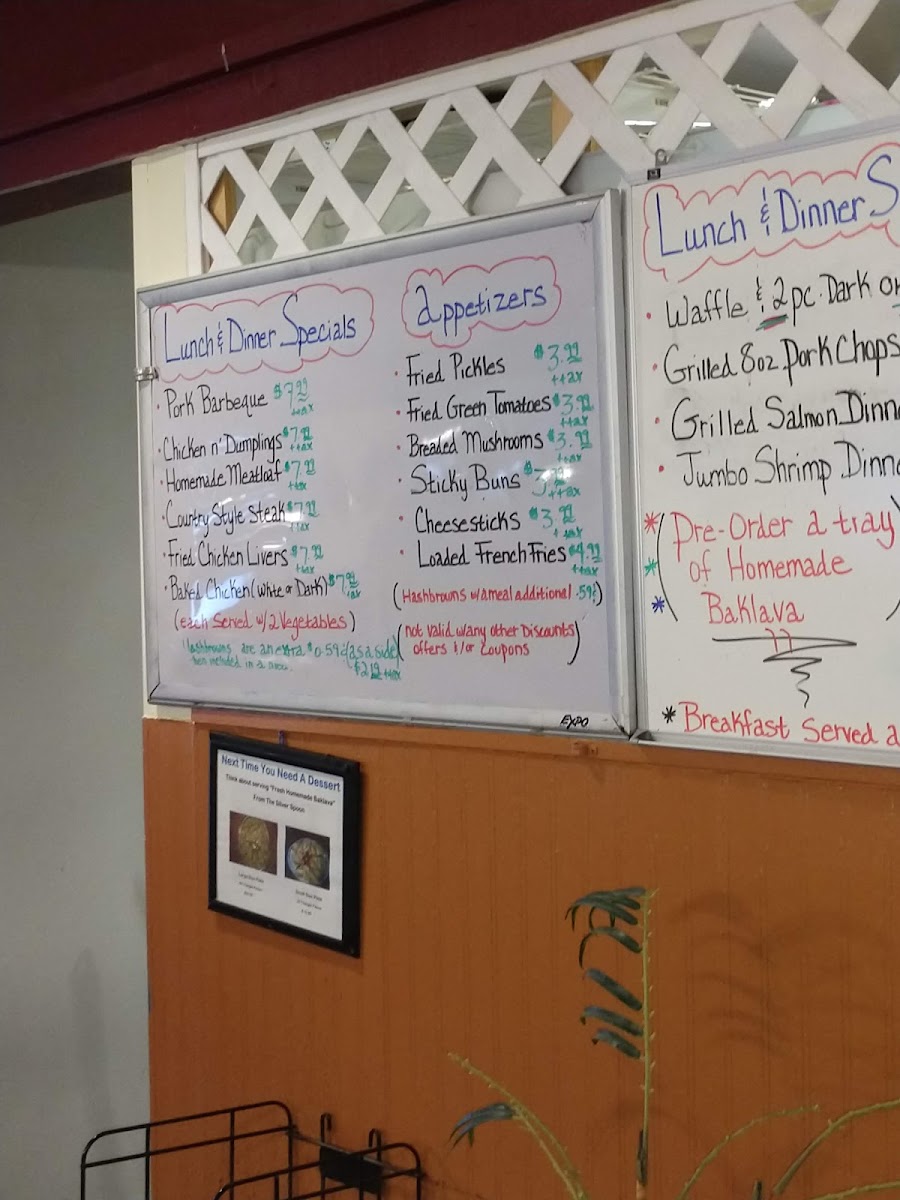 Lunch & Dinner Specials
· Pork Barbeque $7.99 +tax
· Chicken n' Dumplings $7.99 +tax
· Homemade Meatloaf $7.99 +tax
· Country Style Steak $7.99 +tax
· Fried Chicken Livers $7.99 +tax
· Baked Chicken (White or Dark) $7.99 +tax
(each Served w/2 Vegetables)
Hashbrowns are an extra $0.59¢ (as a side
$2.19 +tax
Appetizers
· Fried Pickles $3.99 +tax
· Fried Green Tomatoes $3.99 +tax
· Breaded Mushrooms $3.99 +tax
· Sticky Buns $3.99 +tax
· Cheesesticks $3.99 +tax
· Loaded French Fries $4.99 +tax
(Hashbrowns w/a meal additional .59¢)
(not valid w/any other Discounts
offers &/or Coupons)
EXPO
Lunch & Dinner S
· Waffle & 2pc. Dark or
· Grilled 8oz Pork Chops
· Grilled Salmon Dinn
· Jumbo Shrimp Dinn
* (Pre-Order a tray
* of Homemade
* Baklava)
* Breakfast Served a
Next Time You Need A Dessert
Think about serving "Fresh Homemade Baklava"
From The Silver Spoon